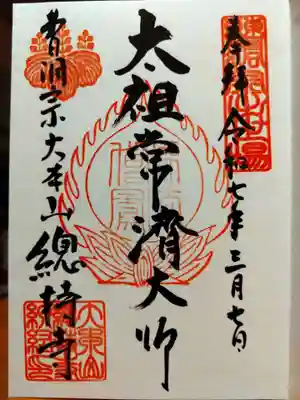 奉拝 令和七年三月七日
太祖常濟大師
曹洞宗大本山總持寺